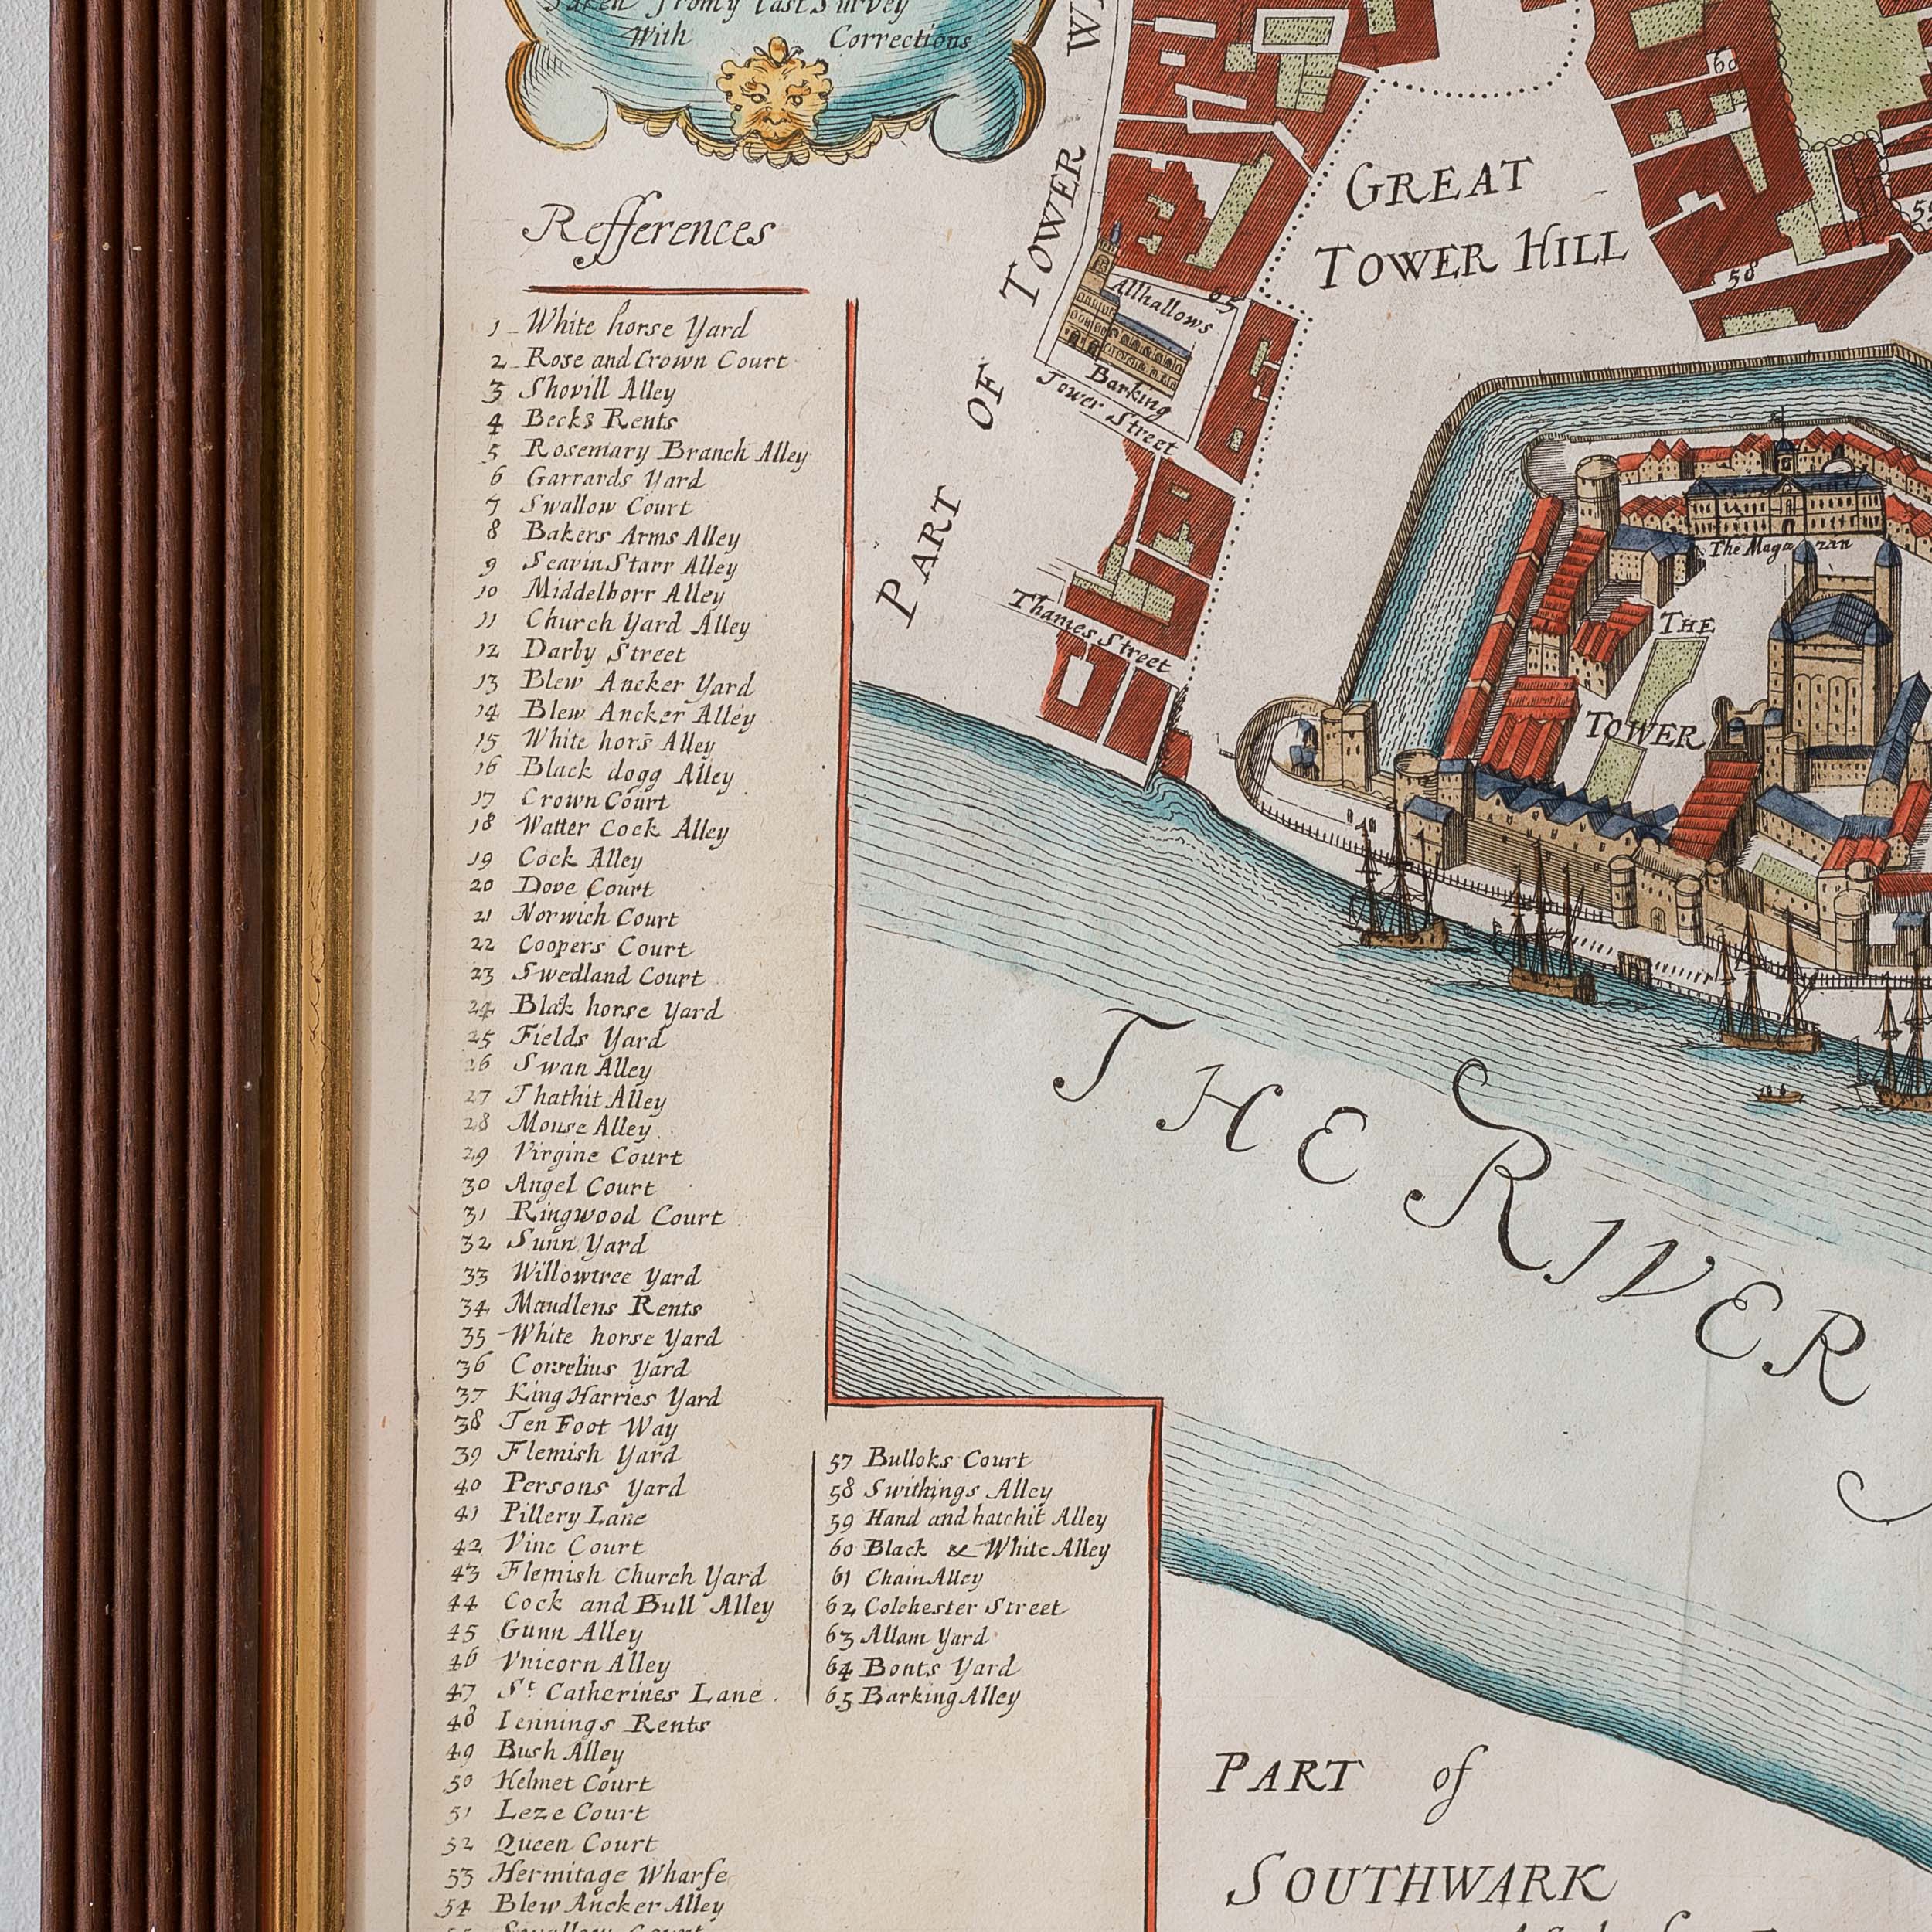 Taken from y last Survey
With Corrections
Refferences
1 White horse Yard
2 Rose and Crown Court
3 Shovill Alley
4 Becks Rents
5 Rosemary Branch Alley
6 Garrards Yard
7 Swallow Court
8 Bakers Arms Alley
9 Seavin Starr Alley
10 Middelborr Alley
11 Church Yard Alley
12 Darby Street
13 Blew Ancker Yard
14 Blew Ancker Alley
15 White hors Alley
16 Black dogg Alley
17 Crown Court
18 Watter Cock Alley
19 Cock Alley
20 Dove Court
21 Norwich Court
22 Coopers Court
23 Swedland Court
24 Blak horse Yard
25 Fields Yard
26 Swan Alley
27 Thathit Alley
28 Mouse Alley
29 Virgine Court
30 Angel Court
31 Ringwood Court
32 Sunn Yard
33 Willowtree Yard
34 Maudlens Rents
35 White horse Yard
36 Cornelius Yard
37 King Harries Yard
38 Ten Foot Way
39 Flemish Yard
40 Persons Yard
41 Pillery Lane
42 Vine Court
43 Flemish Church Yard
44 Cock and Bull Alley
45 Gunn Alley
46 Vnicorn Alley
47 St Catherines Lane
48 Iennings Rents
49 Bush Alley
50 Helmet Court
51 Leze Court
52 Queen Court
53 Hermitage Wharfe
54 Blew Ancker Alley
57 Bulloks Court
58 Swithings Alley
59 Hand and hatchit Alley
60 Black & White Alley
61 Chain Alley
62 Colchester Street
63 Allam Yard
64 Bonts Yard
65 Barking Alley
PART OF TOWER
GREAT
TOWER HILL
60
58
65
Allhallows
Barking
Tower Street
Thames Street
The Magazan
THE
TOWER
THE RIVER
PART of
SOUTHWARK